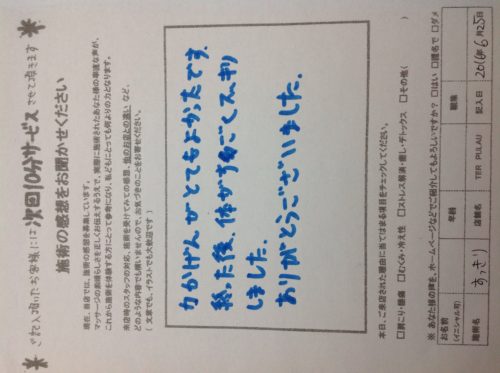 ご記入頂いたお客様には次回10分サービスさせて頂きます
施術の感想をお聞かせください
現在、当店では、施術の感想を募集しています。
マッサージの素晴らしさを正しくお伝えするうえで、実際に施術されたあなた様の率直な声が、
これから施術を体験する方にとって参考になり、私どもにとっても何よりの力となります。
来店時のスタッフの対応、施術を受けてみての感想、他のお店との違い、など、
どのような内容でも構いませんので、お気づきのことをお寄せください。
(文章でも、イラストでも大歓迎です)
力かげんがとてもよかったです。
終った後、体がすごくスッキリ
しました。
ありがとうございました。
本日、ご来店された理由に当てはまる項目をチェックしてください。
□肩こり・腰痛 □むくみ・冷え性 □ストレス解消・癒し・デトックス □その他(
※ あなた様の声を、ホームページなどでご紹介してもよろしいですか? □はい □匿名で □ダメ
お名前
(イニシャル可)
年齢
職業
記入日
2016年6月25日
施術名
すっきり
店舗名
TER PULAU